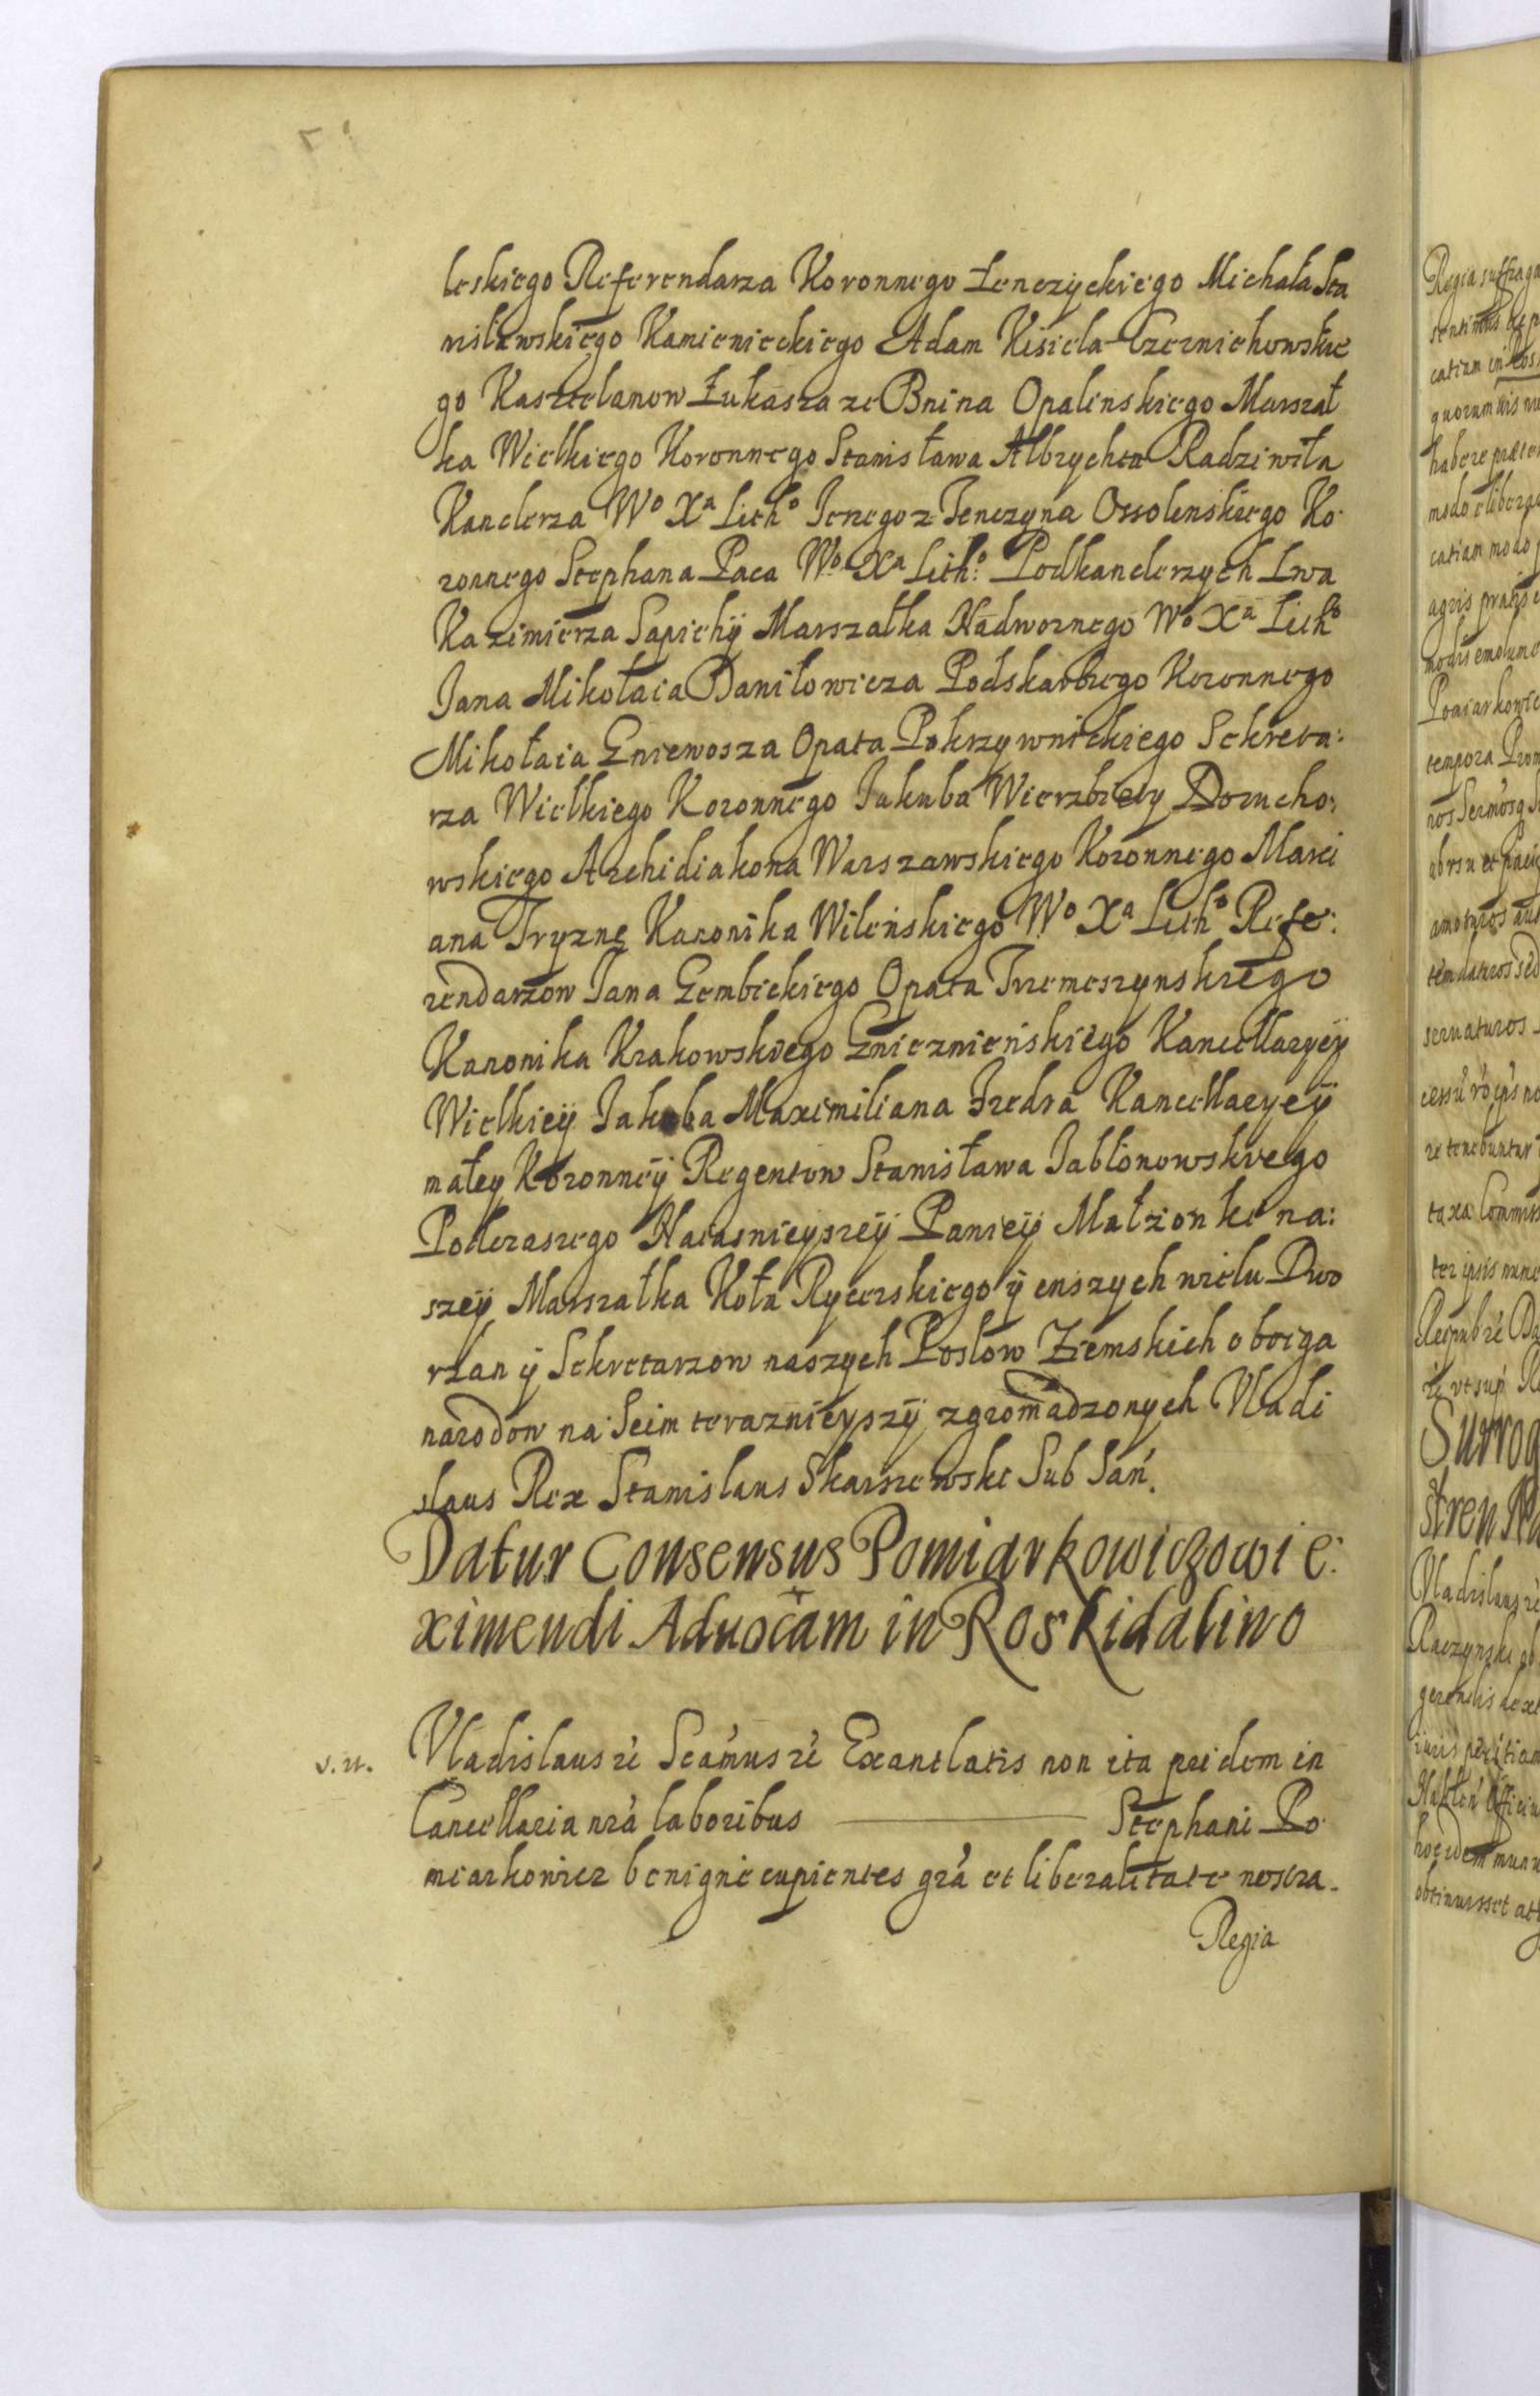 leskiego Referendarza Koronnego Łenczyckiego Michała Sta
nisławskiego Kamienieckiego Adam Kisiela Czernichowskie
go Kasztelanow Łukasza ze Bnina Opalenskiego Marszał
ka Wielkiego Koronnego Stanisława Albrychta Radziwiła
Kanclerza Wº Xª Lithº Jerzego z Tenczyna Ossolenskiego Ko
ronnego Stephana Paca Wº Xª Lithº Podkanclerzych Lwa
Kazimierza Sapiehÿ Marszałka Nadwornego Wº Xª Lithº
Jana Mikołaia Daniłowicza Podskarbiego Koronnego
Mikołaia Gniewosza Opata Pokrzywnickiego Sekreta:
rza Wielkiego Koronnego Jakuba Wierzbiety Dorucho:
wskiego Archidiakona Warszawskiego Koronnego Marci
ana Tryznę Kanonika Wileńskiego Wº Xª Lithº Refe:
rendarzow Jana Gembickiego Opata Trzemeszynskiego
Kanonika Krakowskiego Gnieznieńskiego Kancellaryeÿ
Wielkieÿ Jakuba Maximiliana Fredra Kancellaryeÿ
małey Koronneÿ Regentow Stanisława Jabłonowskiego
Podczaszego Naiasnieyszeÿ Panieÿ Małżonki na:
szeÿ Marszałka Koła Rycerskiego ÿ enszych wielu Dwo
rzan ÿ Sekretarzow naszych Posłow Ziemskich oboiga
narodow na Seim teraznieyszÿ zgromadzonych Vladi
slaus Rex Stanislaus Skarszewski Sub San.
Datur Consensus Pomiarkowiczowi e:
ximendi Aduocam in Roskidalino
v.n. Vladislaus re Scamus re Exantlatis non ita pridem in
Cancellaria nra laboribus — Stephani Po
miarkowicz benigne cupientes gra et liberalitate nostra
Regia
Regia suffraga
catiam in Ros
quorum uis
habere
catiam modo
agris pratis
Pomiarkowic
tempora
seruaturos
re tenebuntur
taxa Commis
ter ipsis nunc
Surrog
Vladislaus re
Raczynski ob
obtinuisset